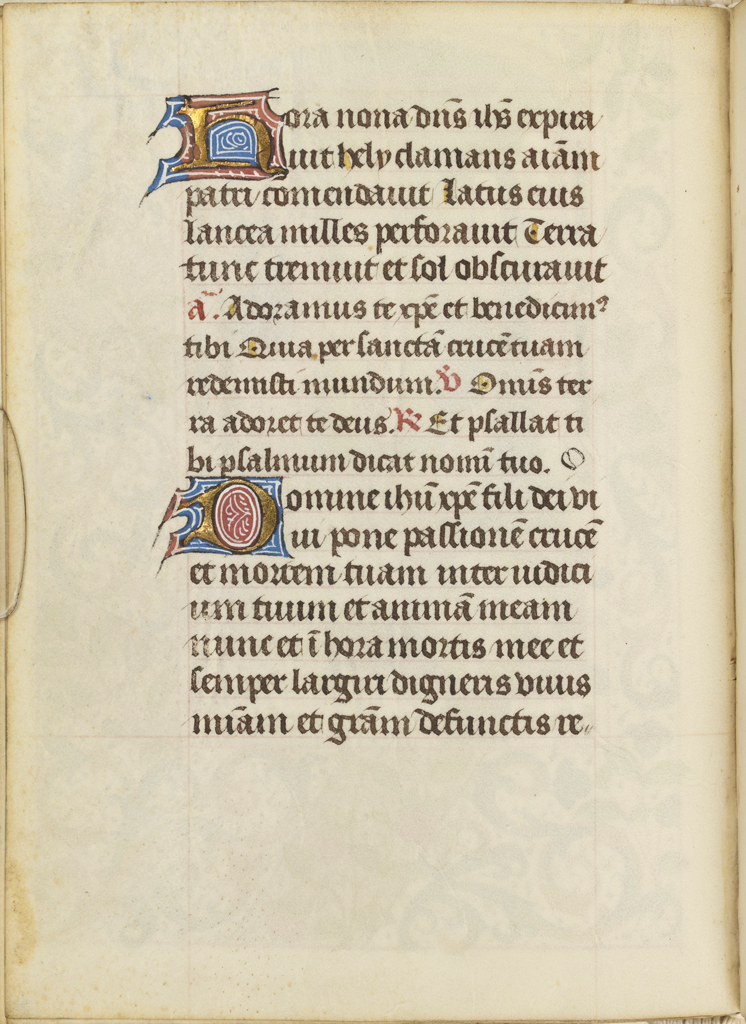 Hora nona dn̄s ih̄s expira
uit hely clamans aīam
patri comendauit Latus eius
lancea milles perforauit Terra
tunc tremuit et sol obscurauit
a. Adoramus te xp̄e et benedicim⁹
tibi Quia per sanctā crucē tuam
redemisti mundum. V Omīs ter
ra adoret te deus. R Et psallat ti
bi psalmum dicat nomī tuo. O
Domine ihū xp̄e fili dei vi
ui pone passionē crucē
et mortem tuam inter iudici
um tuum et animā meam
nunc et ī hora mortis mee et
semper largiri digneris viuis
mīam et grām defunctis re